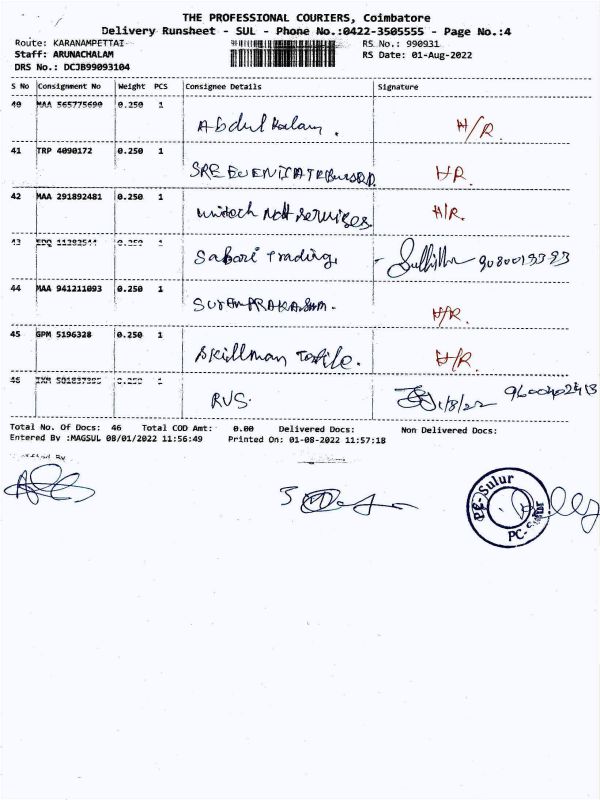 THE PROFESSIONAL COURIERS, Coimbatore
Delivery Runsheet - SUL - Phone No.:0422-3505555 - Page No.:4
Route: KARANAMPETTAI
RS No.: 990931
Staff: ARUNACHALAM
RS Date: 01-Aug-2022
DRS No.: DCJB99093104
S No Consignment No Weight PCS Consignee Details Signature
40 MAA 565775690 0.250 1
Abdul Kalam. H/R.
41 TRP 4090172 0.250 1
SRE HR.
42 MAA 291892481 0.250 1
unitech services H/R.
43 EDQ 0.250 1
Sabari Trading,
44 MAA 941211093 0.250 1
H/R.
45 GPM 5196328 0.250 1
Skillman Textile. H/R.
46 0.250 1
RVS. 1/8/22 9600402413
Total No. Of Docs: 46 Total COD Amt: 0.00 Delivered Docs: Non Delivered Docs:
Entered By :MAGSUL 08/01/2022 11:56:49 Printed On: 01-08-2022 11:57:18
PC-Sulur
PC-Sulur